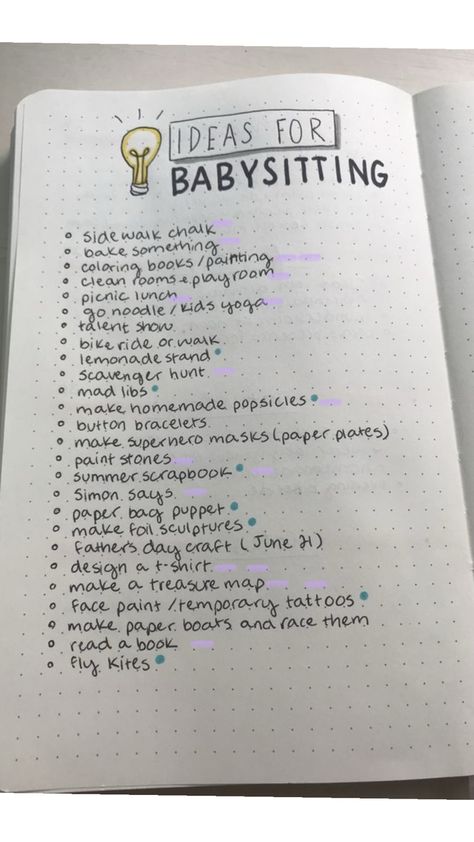 IDEAS FOR
BABYSITTING
• sidewalk chalk
• bake something
• coloring books/painting
• clean rooms + playroom
• picnic lunch
• go noodle / kids yoga
• talent show
• bike ride or walk
• lemonade stand
• scavenger hunt
• mad libs
• make homemade popsicles
• button bracelets
• make superhero masks (paper plates)
• paint stones
• summer scrapbook
• simon says
• paper bag puppet
• make foil sculptures
• father's day craft (June 21)
• design a t-shirt
• make a treasure map
• face paint / temporary tattoos
• make paper boats and race them
• read a book
• fly kites